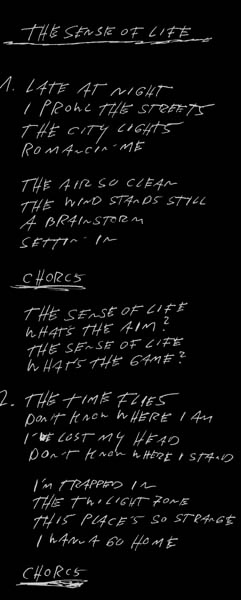 THE SENSE OF LIFE
1. LATE AT NIGHT
I PROWL THE STREETS
THE CITY LIGHTS
ROMANCIN-ME
THE AIR SO CLEAN
THE WIND STANDS STILL
A BRAINSTORM
SETTIN-IN
CHORUS
THE SENSE OF LIFE
WHAT'S THE AIM?
THE SENSE OF LIFE
WHAT'S THE GAME?
2. THE TIME FLIES
DON'T KNOW WHERE I AM
I'VE LOST MY HEAD
DON'T KNOW WHERE I STAND
I'M TRAPPED IN
THE TWILIGHT ZONE
THIS PLACE'S SO STRANGE
I WANNA GO HOME
CHORUS